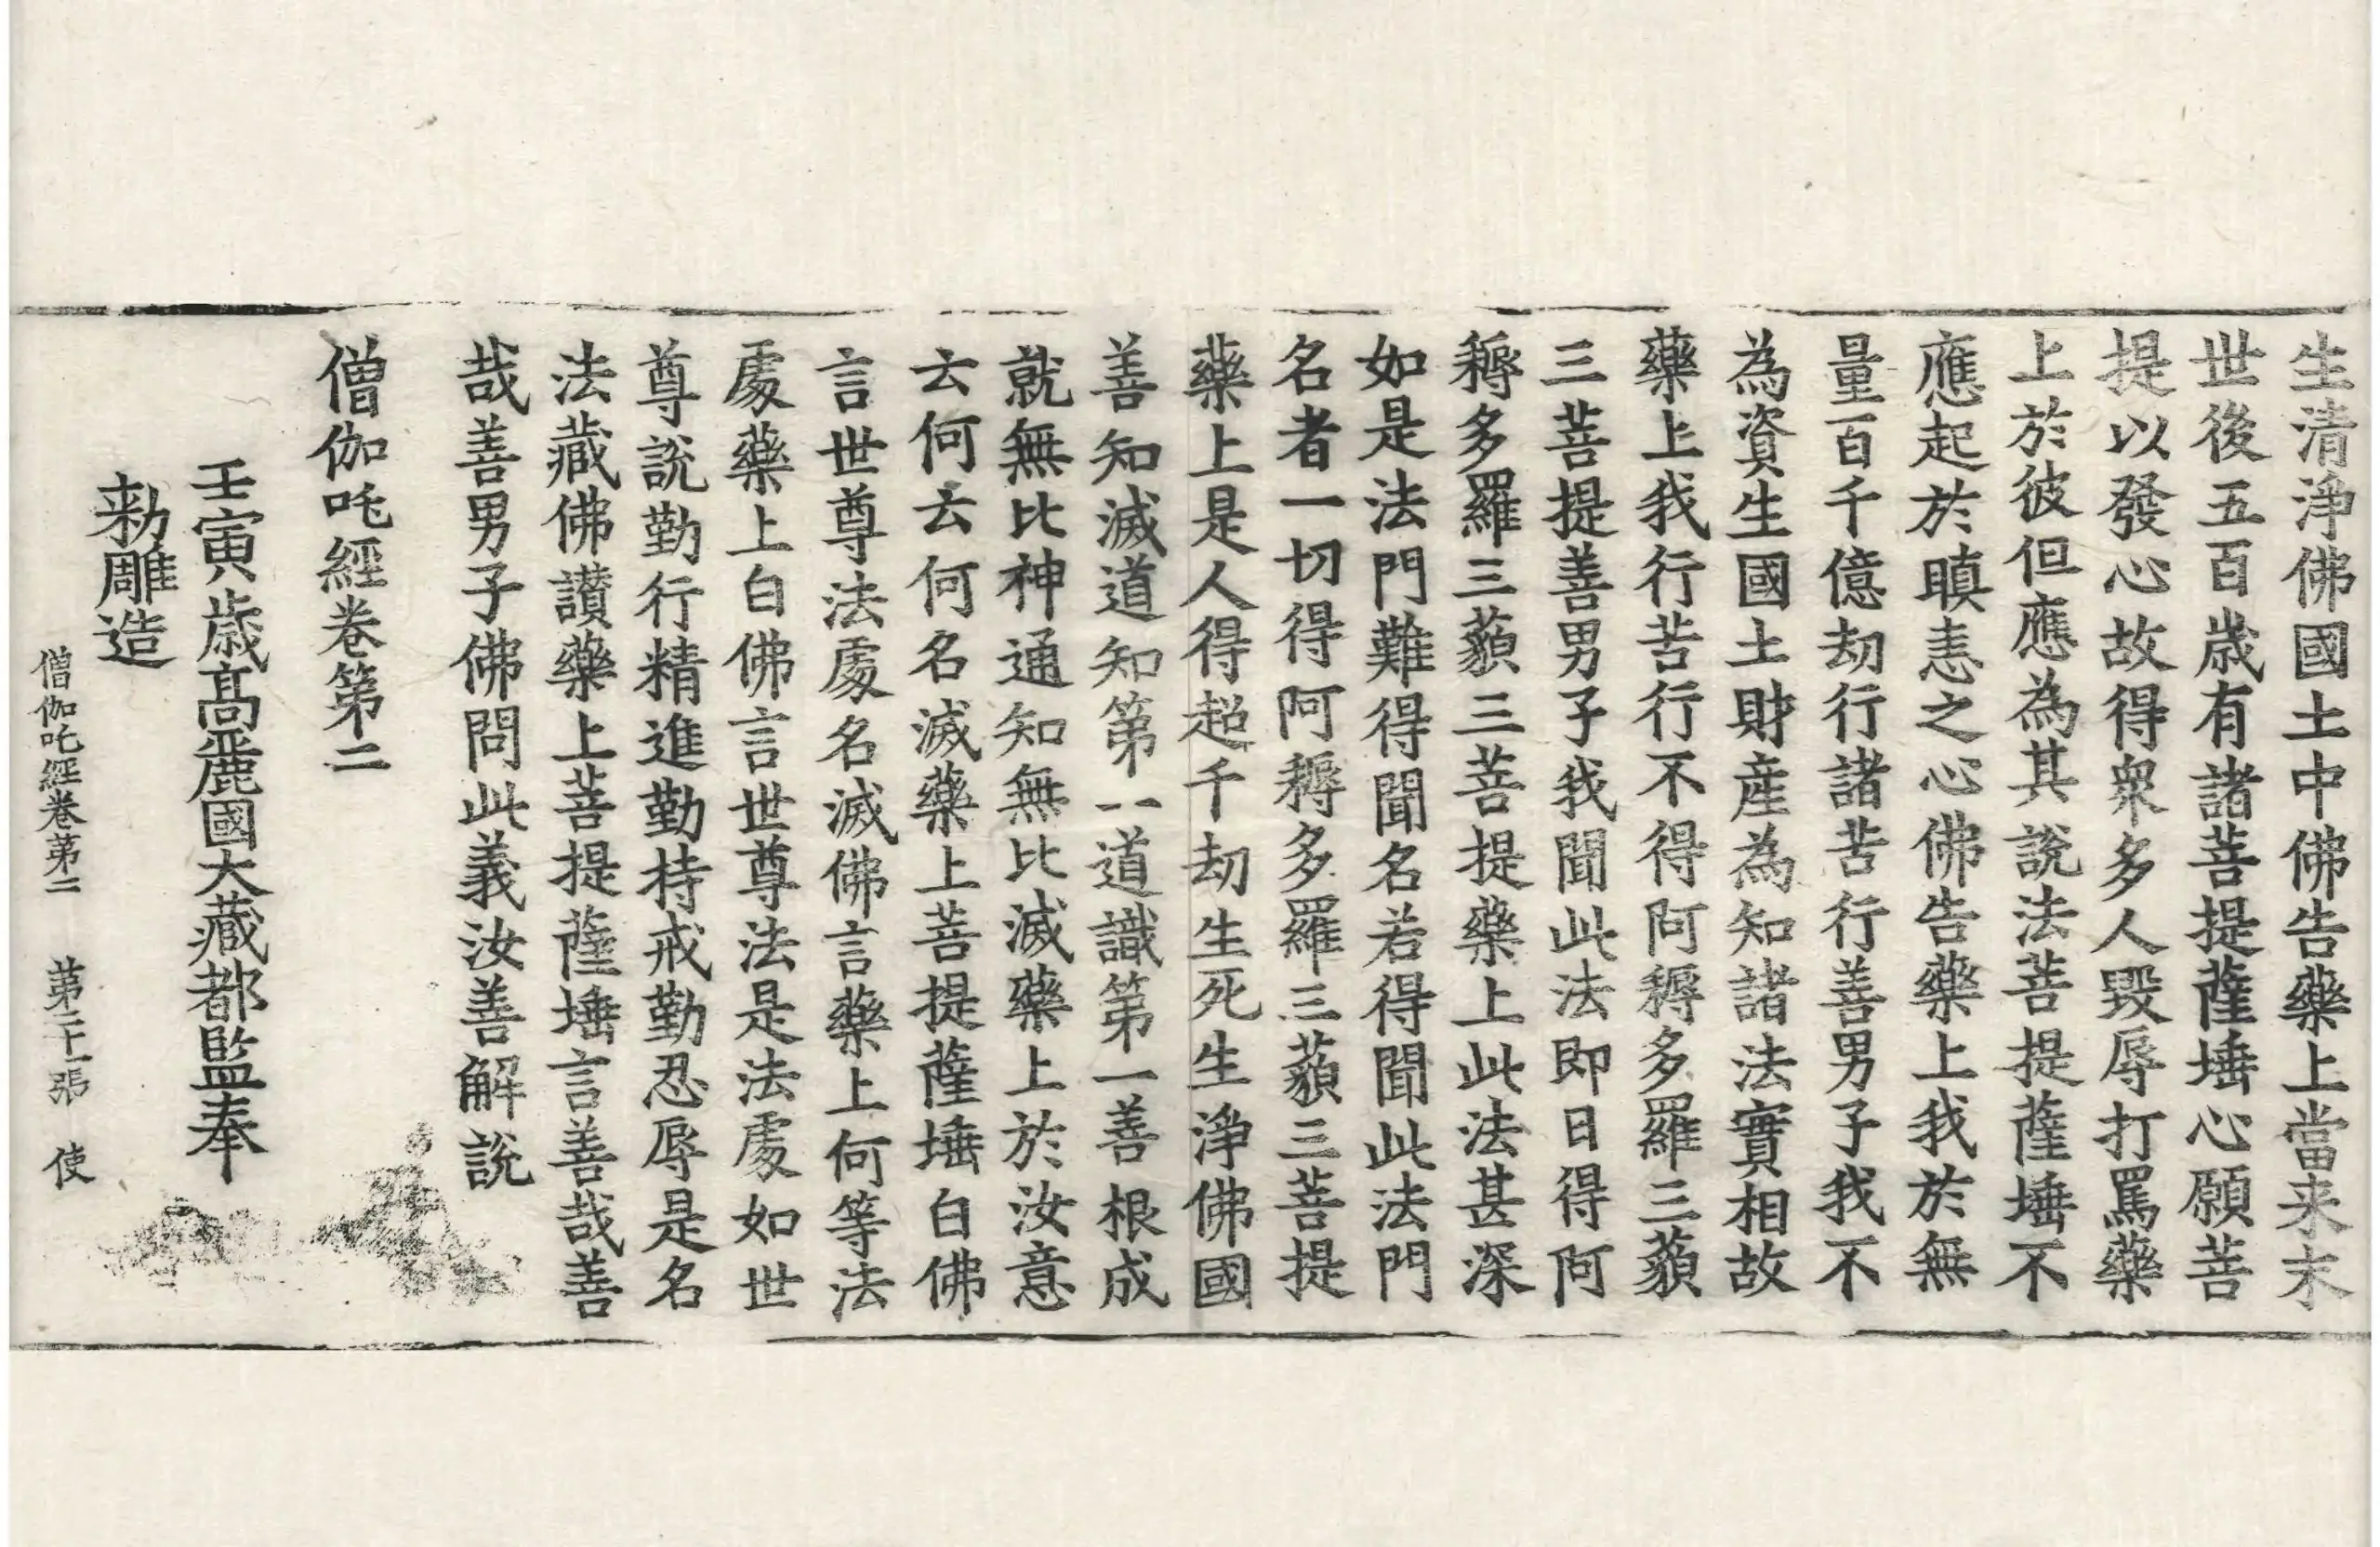 生清淨佛國土中佛告藥上當来末
世後五百歲有諸菩提薩埵心願菩
提以發心故得衆多人毀辱打罵藥
上於彼但應為其說法菩提薩埵不
應起於瞋恚之心佛告藥上我於無
量百千億劫行諸苦行善男子我不
為資生國土財産為知諸法實相故
藥上我行苦行不得阿耨多羅三藐
三菩提善男子我聞此法即日得阿
耨多羅三藐三菩提藥上此法甚深
如是法門難得聞名若得聞此法門
名者一切得阿耨多羅三藐三菩提
藥上是人得超千劫生死生淨佛國
善知滅道知第一道識第一善根成
就無比神通知無比滅藥上於汝意
云何云何名滅藥上菩提薩埵白佛
言世尊法處名滅佛言藥上何等法
處藥上白佛言世尊法是法處如世
尊說勤行精進勤持戒勤忍辱是名
法藏佛讃藥上菩提薩埵言善哉善
哉善男子佛問此義汝善解說
僧伽吒經卷第二
壬寅歲高麗國大藏都監奉
勑雕造
僧伽吒經卷第二 第二十一張 使